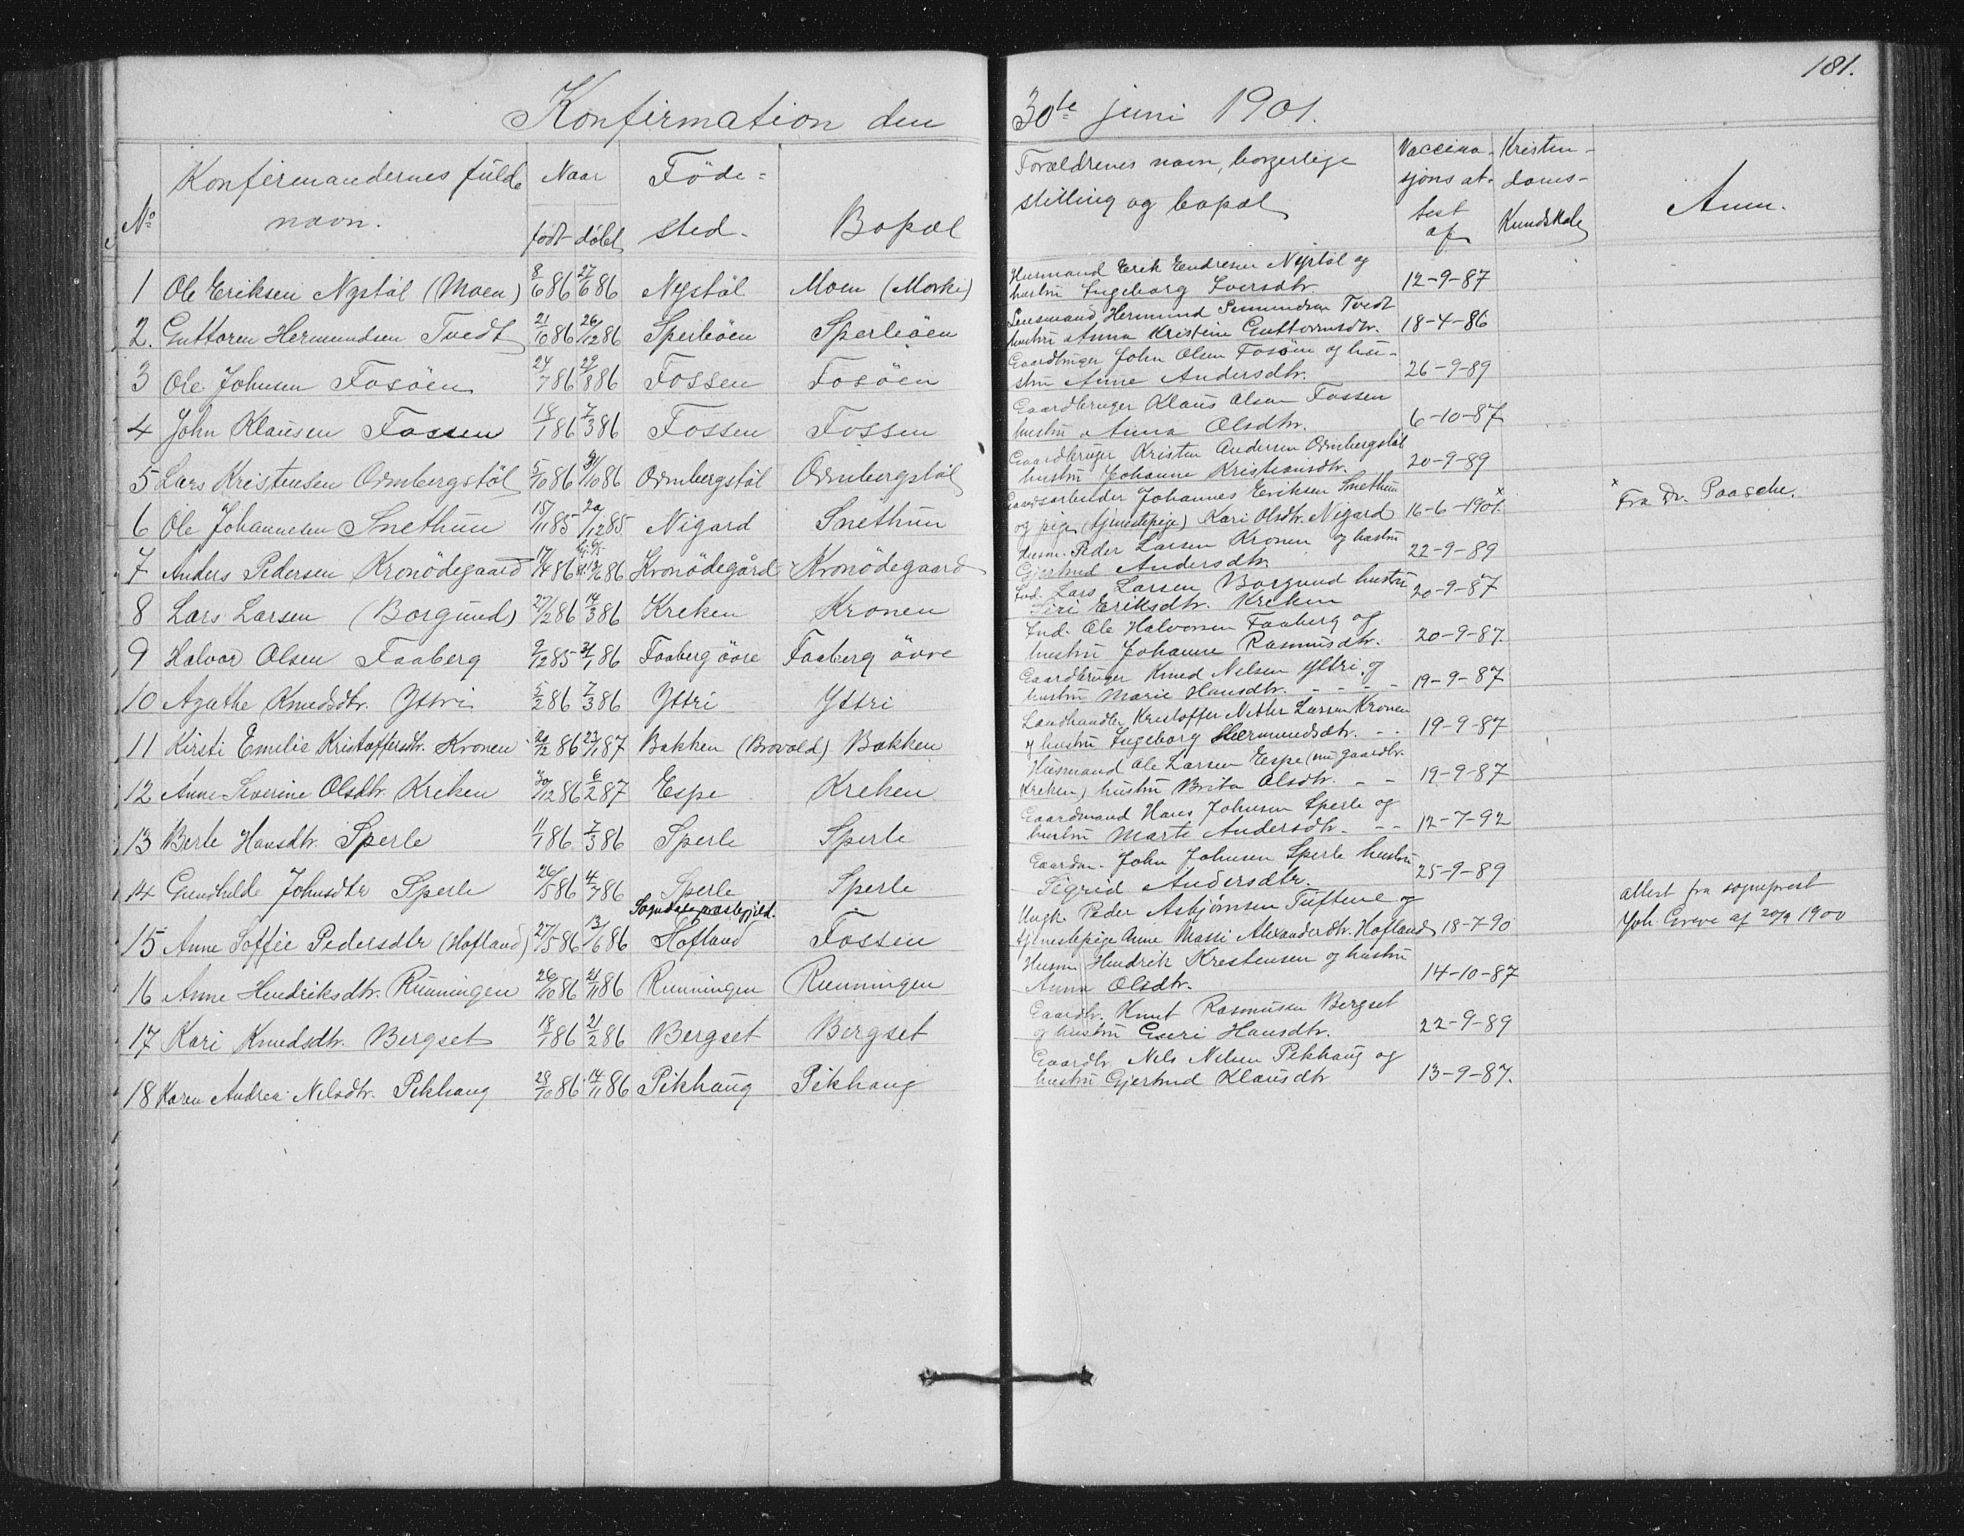 181.
Konfirmation den 30te juni 1901.
No Konfirmandernes fulde navn. Naar født døbt Føde-sted. Bopæl Forældrenes navn, borgerlige stilling og bopæl Vaccina-sjonsattest af Kristen-doms-Kundskab Anm.
1 Ole Eriksen Nystøl (Moen) 8/6 86 27/6 86 Nystøl Moen (Morki) Husmand Erik Endresen Nystøl og
hustru Ingeborg Iversdtr. 12-9-87
2. Guttorm Hermundsen Tvedt 21/10 86 26/12 86 Sperleøen Sperleøen Lensmand Hermund Semundsen Tvedt
hustru Anna Kristine Guttormsdtr. 18-4-86
3 Ole Johnsen Fosøen 24/7 86 29/8 86 Fossen Fosøen Gaardbruger John Olsen Fosøen og hu-
stru Anne Andersdtr. 26-9-89
4 John Klausen Fossen 18/1 86 7/3 86 Fossen Fossen Gaardbruger Klaus Olsen Fossen
hustru Anna Olsdtr. 6-10-87
5 Lars Kristensen Ormbergstøl 5/10 86 31/10 86 Ormbergstøl Ormbergstøl Gaardbruger Kristen Andersen Ormbergstøl
hustru Johanne Kristiansdtr. 20-9-89
6 Ole Johannesen Snethun 15/11 85 20/12 85 Nigard Snethun Gaardsarbeider Johannes Eriksen Snethun
og pige (tjenestepige) Kari Olsdtr. Nigard 16-6-1901. x x Fra Dr. Paasche.
7 Anders Pedersen Kronødegaard 17/4 86 86 Kronødegård Kronødegaard Husm. Peder Larsen Kronen og hustru
Gjertrud Andersdtr. 22-9-89
8 Lars Larsen (Borgund) 27/2 86 14/3 86 Kreken Kronen Ind. Lars Larsen Borgund hustru
Siri Eriksdtr. Kreken 20-9-87
9 Halvor Olsen Faaberg 9/12 85 31/1 86 Faaberg øvre Faaberg øvre Ind. Ole Halvorsen Faaberg og
hustru Johanne Rasmusdtr. 20-9-87
10 Agathe Knudsdtr. Ystri 5/2 86 7/3 86 Ystri Ystri Gaardbruger Knud Nelsen Ystri og
hustru Marie Hansdtr. - - - - 19-9-87
11 Kirsti Emilie Kristoffersdtr. Kronen 20/12 86 23/1 87 Bakken (Brovold) Bakken Landhandler Kristoffer Nitter Larsen Kronen
og hustru Ingeborg Hermundsdtr. - - 19-9-87
12 Anne Severine Olsdtr. Kreken 30/12 86 6/2 87 Espe Kreken Husmand Ole Larsen Espe (nu gaardbr.
Kreken) hustru Brita Olsdtr. - - 19-9-87
13 Berte Hansdtr. Sperle 11/1 86 7/3 86 Sperle Sperle Gaardmand Hans Johnsen Sperle og
hustru Marte Andersdtr. - - 12-7-92
14 Gunhilde Johnsdtr Sperle 26/5 86 4/7 86 Sperle Sperle Gaardm. John Johnsen Sperle hustru
Sigrid Andersdtr. 25-9-89
15 Anne Soffie Pedersdtr (Hofland) 27/5 86 13/6 86 Sogndals præstegjeld. Hofland Fossen Ungk. Peder Asbjørnsen Tuftene og
tjenestepige Anne Massi Alexandersdtr. Hofland 18-7-90 attest fra sogneprest
Joh. Greve af 20/9 1900
16 Anne Hendriksdtr. Runningen 26/10 86 21/11 86 Runningen Runningen Husm. Hendrik Kristensen og hustru
Anna Olsdtr. 14-10-87
17 Kari Knudsdtr. Bergset 18/1 86 21/2 86 Bergset Bergset Gaardbr. Knut Rasmusen Bergset
og hustru Guri Hansdtr. 22-9-89
18 Karen Andrea Nelsdtr. Pikhaug 28/10 86 14/11 86 Pikhaug Pikhaug Gaardbr. Nels Nelsen Pikhaug og
hustru Gjertrud Klausdtr 13-9-87.